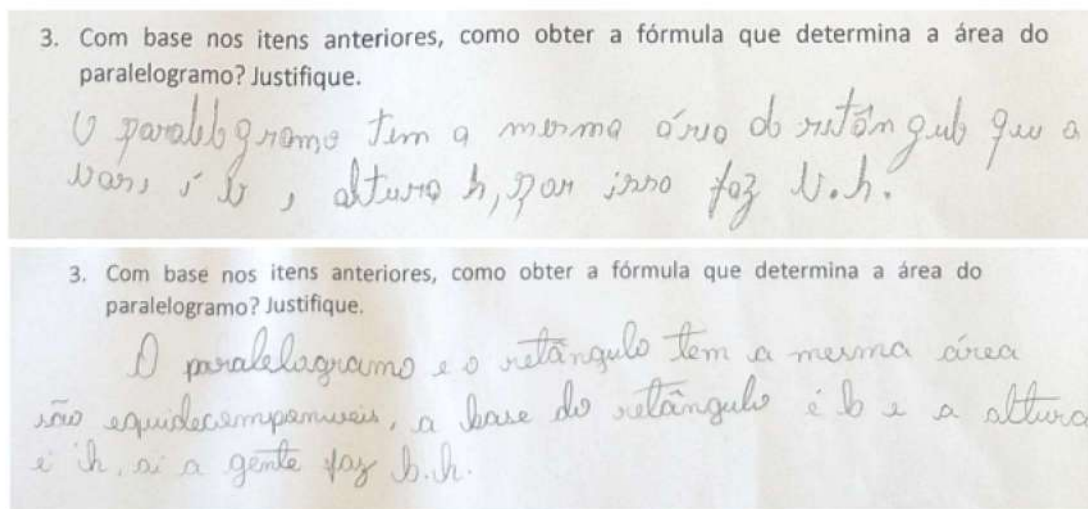 3. Com base nos itens anteriores, como obter a fórmula que determina a área do
paralelogramo? Justifique.
O paralelogramo tem a mesma área do retângulo que a
base é b, altura h, por isso faz b.h.
3. Com base nos itens anteriores, como obter a fórmula que determina a área do
paralelogramo? Justifique.
O paralelogramo e o retângulo tem a mesma área
são equidecomponiveis, a base do retângulo é b e a altura
é h, ai a gente faz b.h.